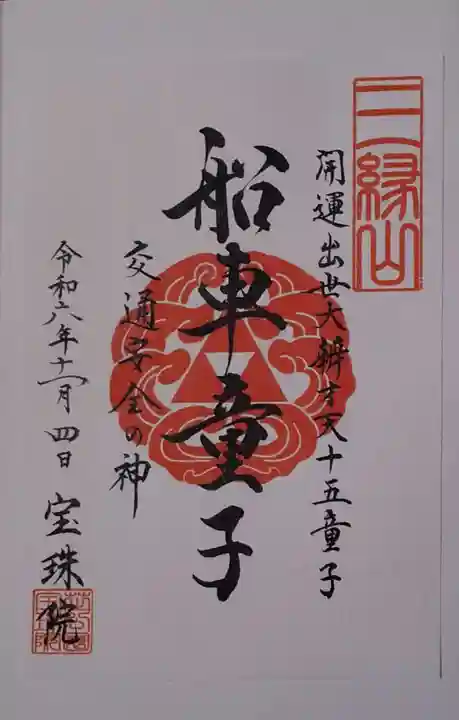 三縁山
開運出世大辨才天十五童子
船車童子
交通安全の神
令和六年十一月四日
宝珠院